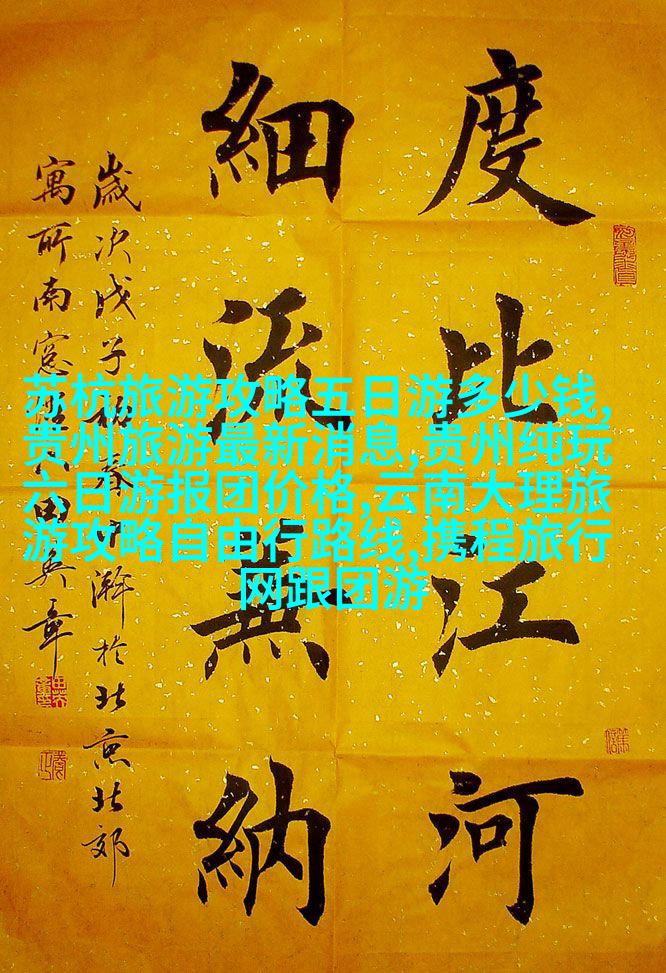 度比江河
細流兼納
歲次戊子春中澣於北京北郊
寓所南窓田英章
苏杭旅游攻略五日游多少钱,
贵州旅游最新消息,贵州纯玩
六日游报团价格,云南大理旅
游攻略自由行路线,携程旅行
网跟团游